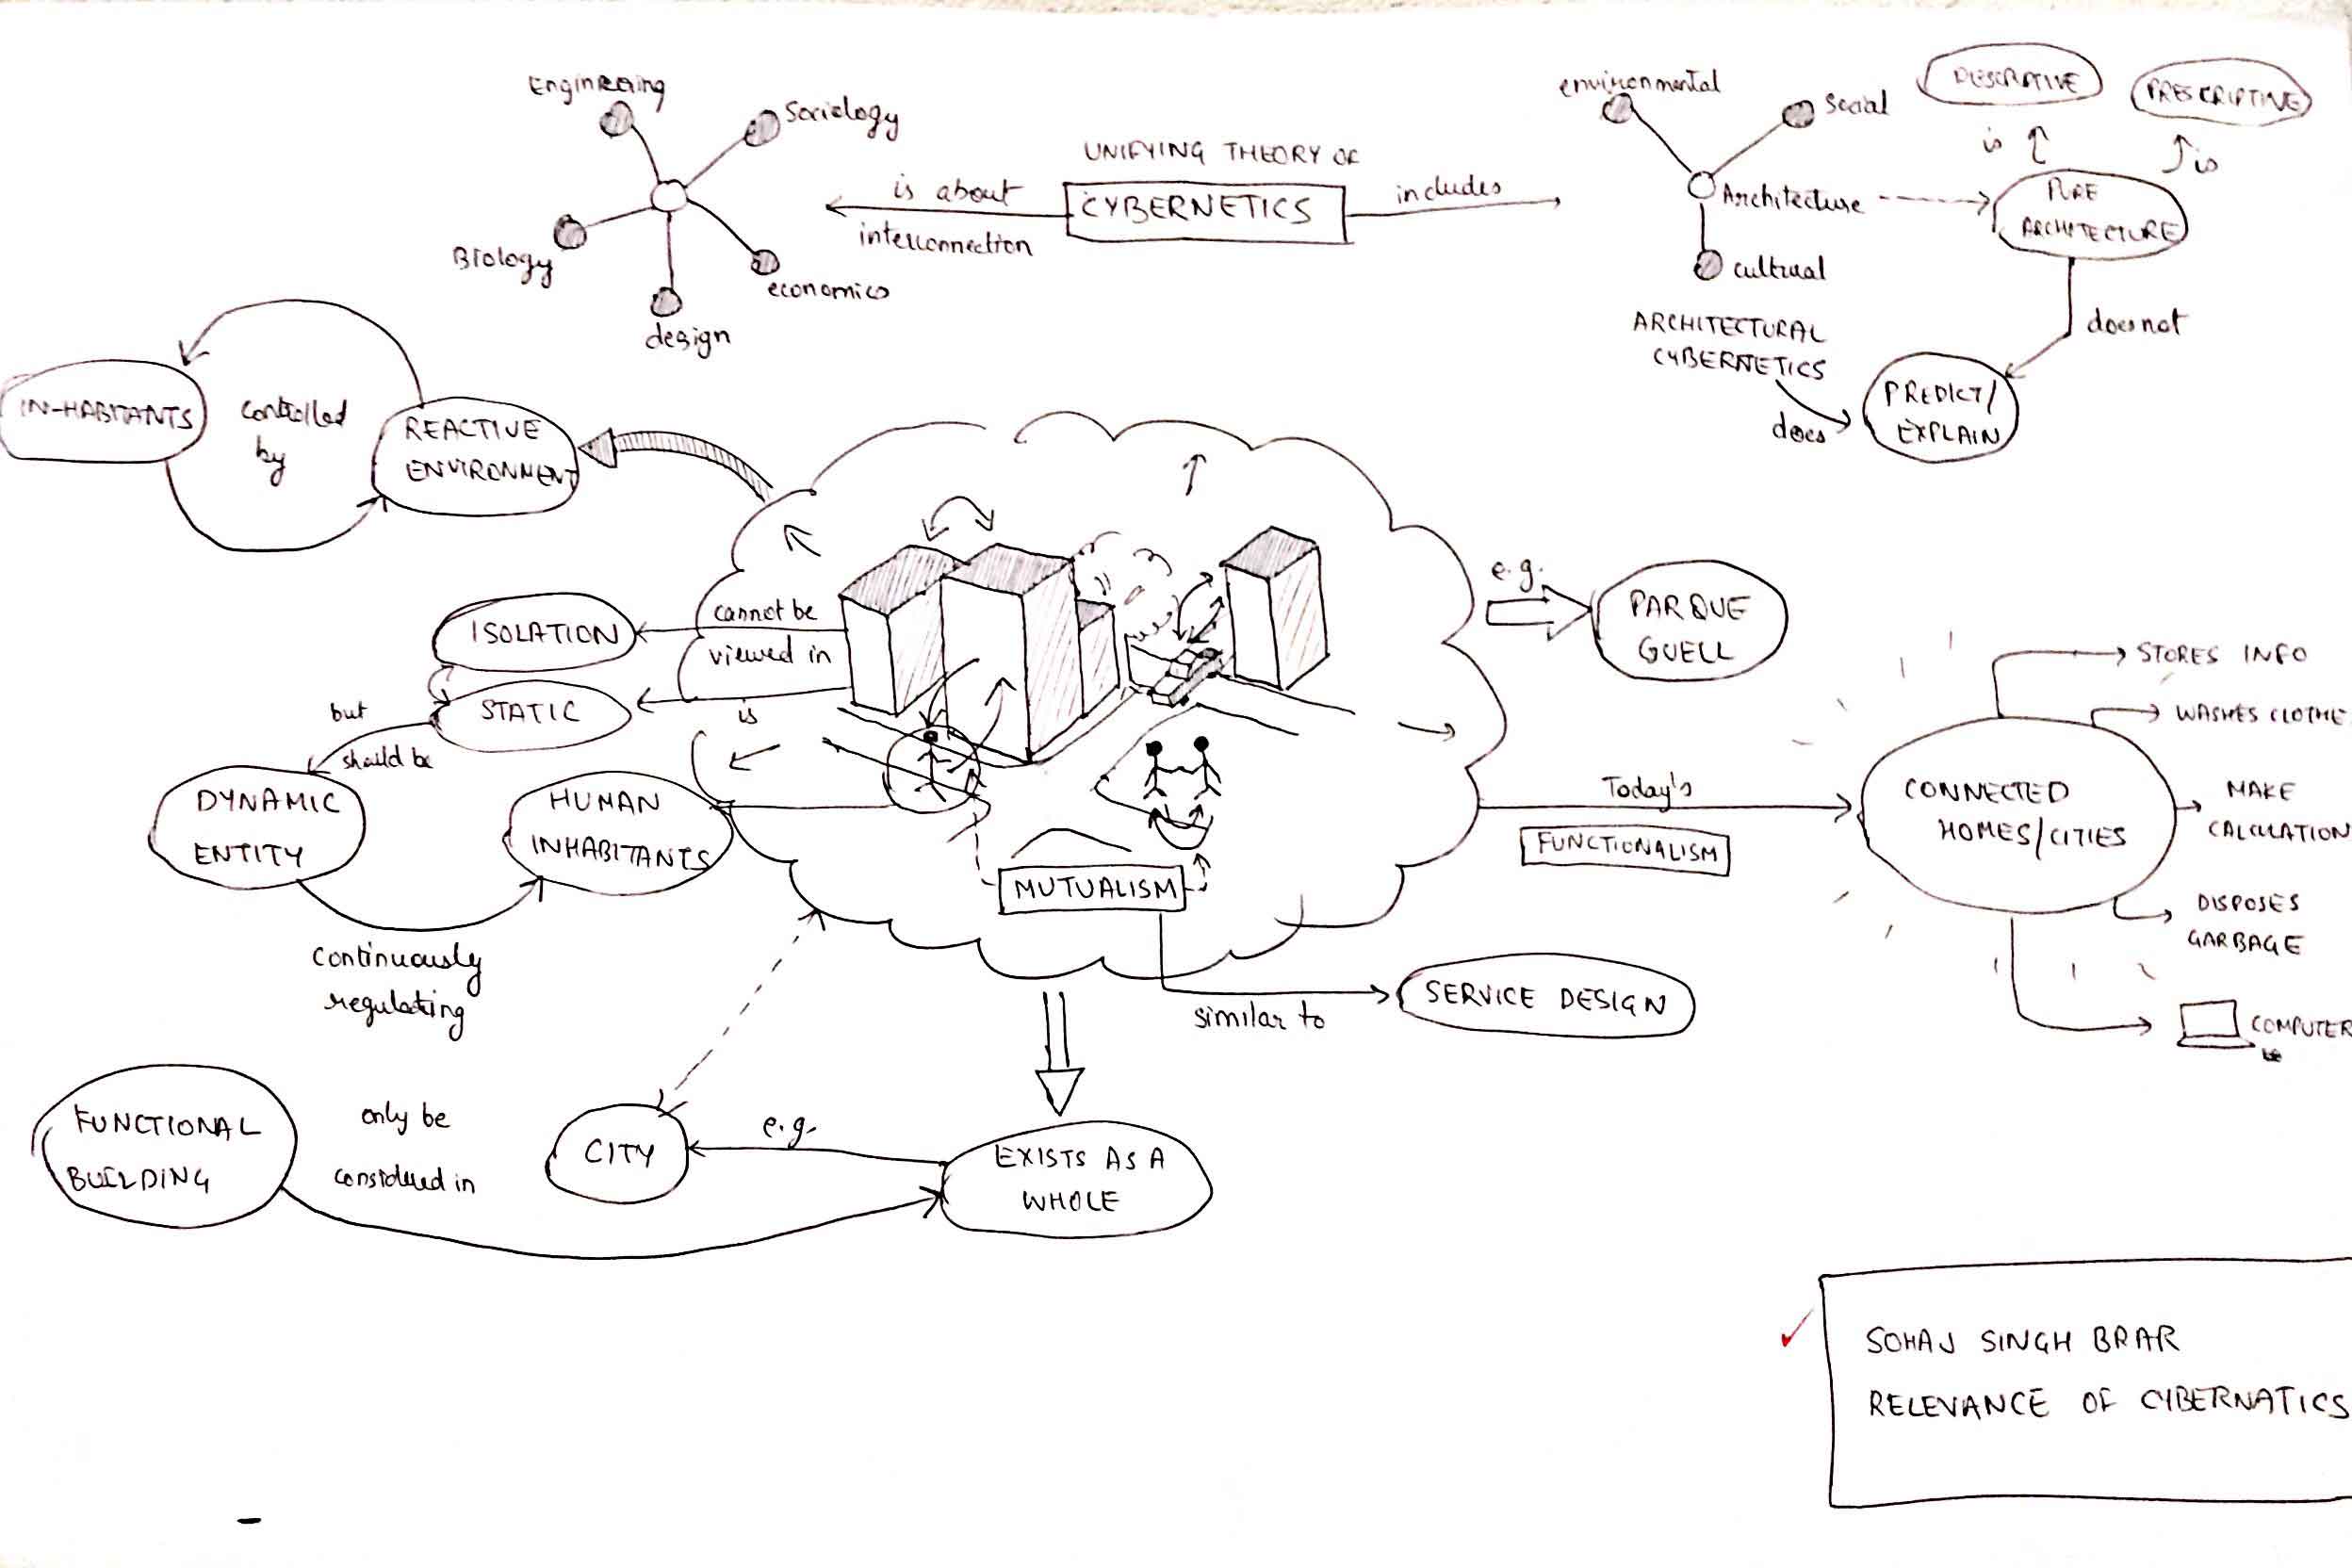 Engineering
Sociology
Biology
economics
design
UNIFYING THEORY OF
CYBERNETICS
is about
interconnection
includes
environmental
Social
Architecture
cultural
DESCRPTIVE
PRESCRIPTIVE
is
is
PURE
ARCHITECTURE
does not
ARCHITECTURAL
CYBERNETICS
does
PREDICT/
EXPLAIN
IN-HABITANTS
controlled
by
REACTIVE
ENVIRONMENT
ISOLATION
cannot be
viewed in
STATIC
is
but
should be
DYNAMIC
ENTITY
HUMAN
INHABITANTS
continuously
regulating
MUTUALISM
e.g.
PARQUE
GUELL
Today's
FUNCTIONALISM
CONNECTED
HOMES/CITIES
STORES INFO
WASHES CLOTHE
MAKE
CALCULATION
DISPOSES
GARBAGE
COMPUTER
similar to
SERVICE DESIGN
FUNCTIONAL
BUILDING
only be
considered in
CITY
e.g.
EXISTS AS A
WHOLE
SOHAJ SINGH BRAR
RELEVANCE OF CYBERNATICS